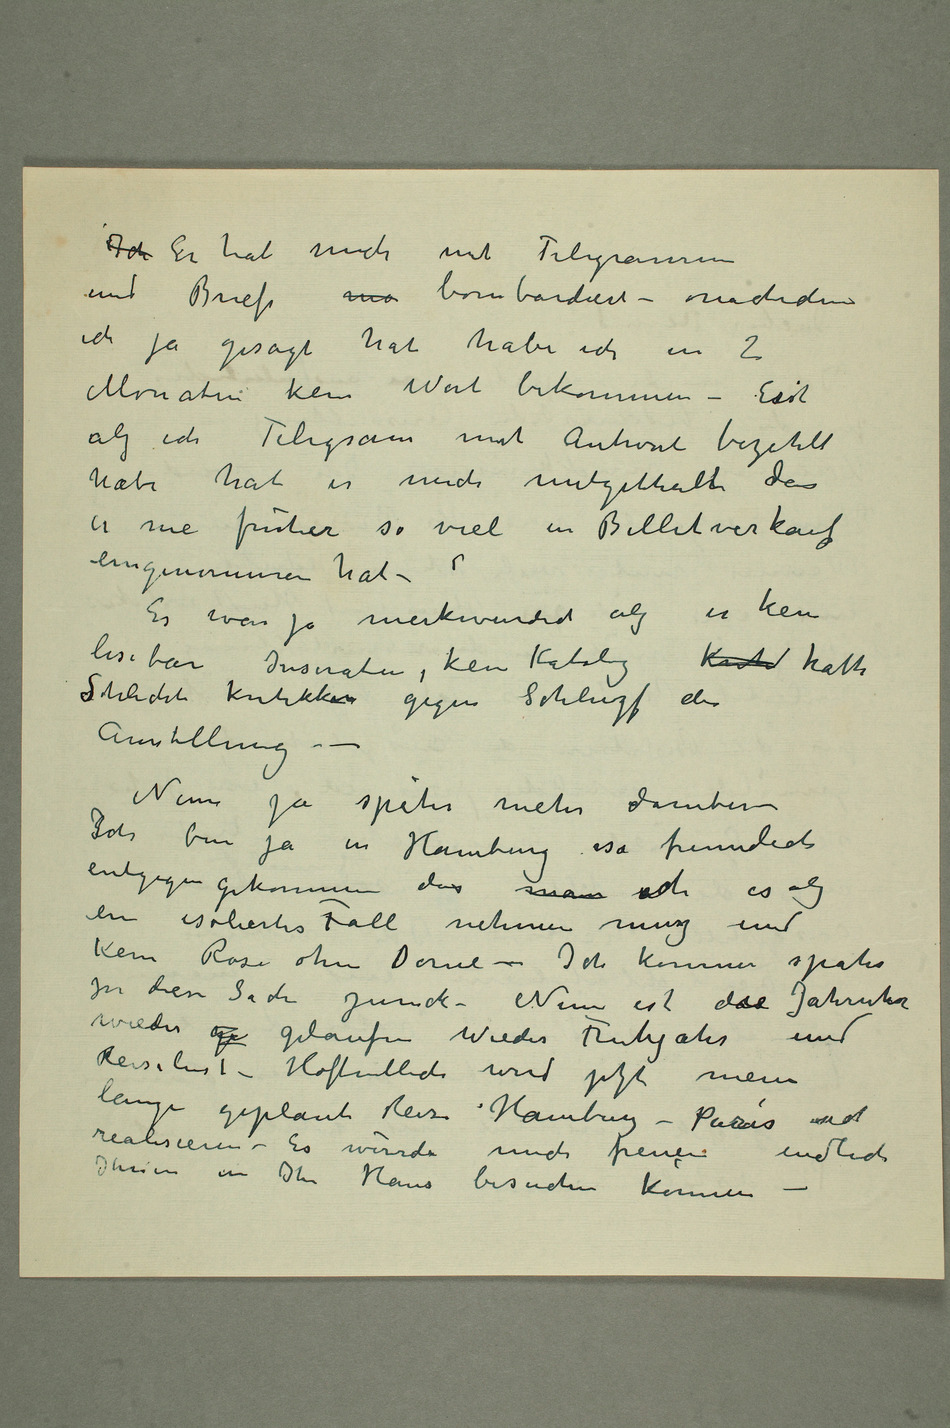 Ich Er hat mich mit Telegrammen
und Briefe ma bombardiert – nachdem
ich ja gesagt hat habe ich in 2
Monaten kein Wort bekommen – Erst
als ich Telegram mit Antwort bezahlt
habe hat er mich mitgetheilt das
er nie früher so viel in Billetverkauf
eingenommen hat –
Es war ja merkwürdich als er kein
lesebar Inseraten, kein Katalog Kritd hatte
Schlecht kritikken gegen Schlusz der
Ausstellung –
Nun ja später mehr darüber –
Ich bin ja in Hamburg so freundlich
entgegengekommen das man ich es als
ein isoliertes Fall nehmen musz und
kein Rose ohne Dorne – Ich komme später
zu diese Sache zurück – Nun ist das Jahr
wieder ge gelaufen wieder Frühjahr und
Reiselust – Hoffentlich wird jetzt meine
lange geplante Reise Hamburg – Paris
realisieren – Es würde mich freuen endlich
Ihnen in Ihr Haus besuchen können –